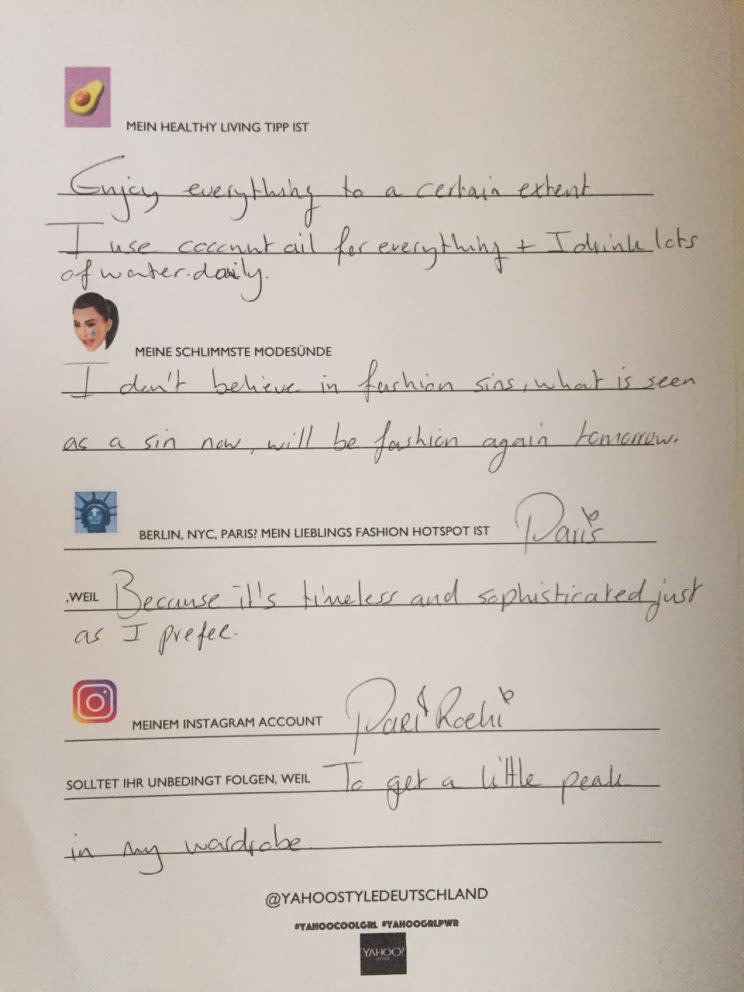 MEIN HEALTHY LIVING TIPP IST
Enjoy everything to a certain extent
I use cocconut oil for everything + I drink lots
of water daily.
MEINE SCHLIMMSTE MODESÜNDE
I don't believe in fashion sins, what is seen
as a sin now, will be fashion again tomorrow.
BERLIN, NYC, PARIS? MEIN LIEBLINGS FASHION HOTSPOT IST Paris
,WEIL Because it's timeless and sophisticated just
as I prefer.
MEINEM INSTAGRAM ACCOUNT Pari Roehi
SOLLTET IHR UNBEDINGT FOLGEN, WEIL To get a little peak
in my wardrobe
@YAHOOSTYLEDEUTSCHLAND
#YAHOOCOOLGRL #YAHOOGRLPWR
YAHOO!
STYLE